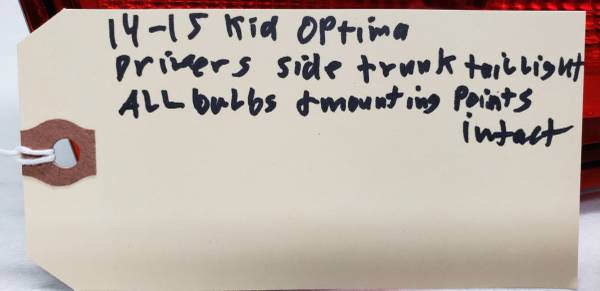 14-15 Kia Optima
Drivers side trunk taillight
ALL bulbs + mounting points
intact